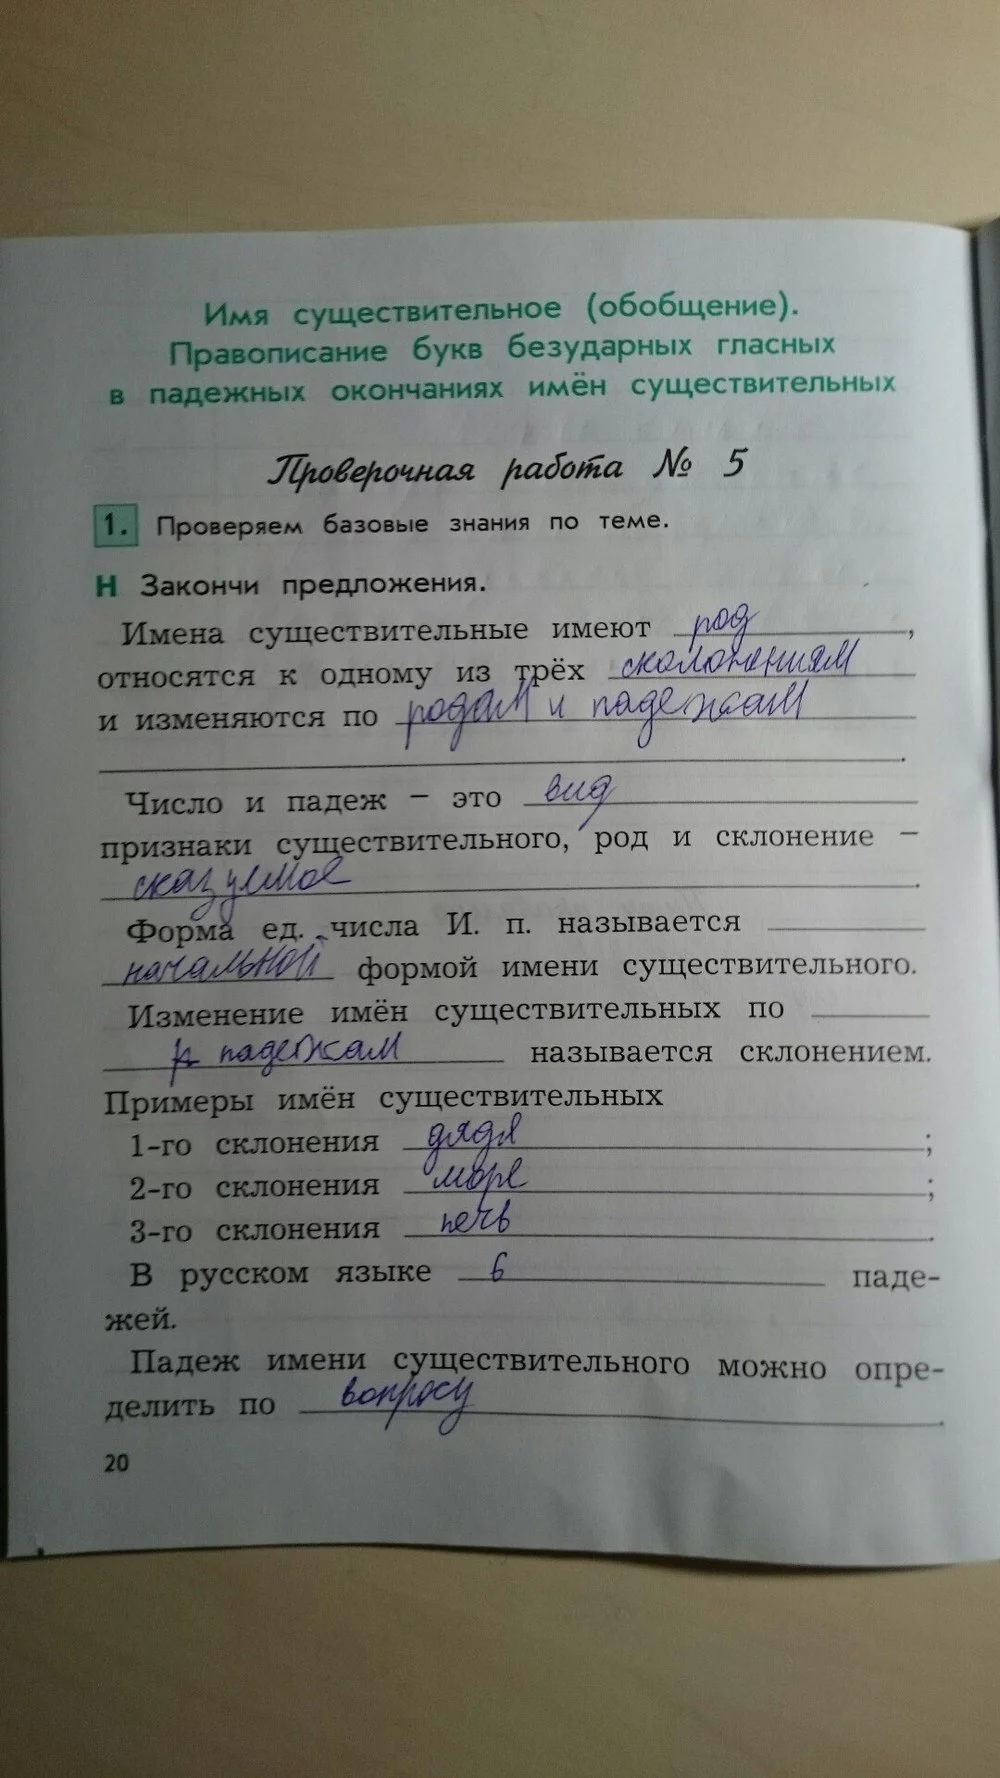 Имя существительное (обобщение).
Правописание букв безударных гласных
в падежных окончаниях имён существительных
Проверочная работа № 5
1. Проверяем базовые знания по теме.
Н Закончи предложения.
Имена существительные имеют род,
относятся к одному из трёх сколонениям
и изменяются по родам и падежам
.
Число и падеж – это вид
признаки существительного, род и склонение –
сказуемое.
Форма ед. числа И. п. называется
начальной формой имени существительного.
Изменение имён существительных по
падежам называется склонением.
Примеры имён существительных
1-го склонения дядя;
2-го склонения море;
3-го склонения печь.
В русском языке 6 паде-
жей.
Падеж имени существительного можно опре-
делить по вопросу.
20